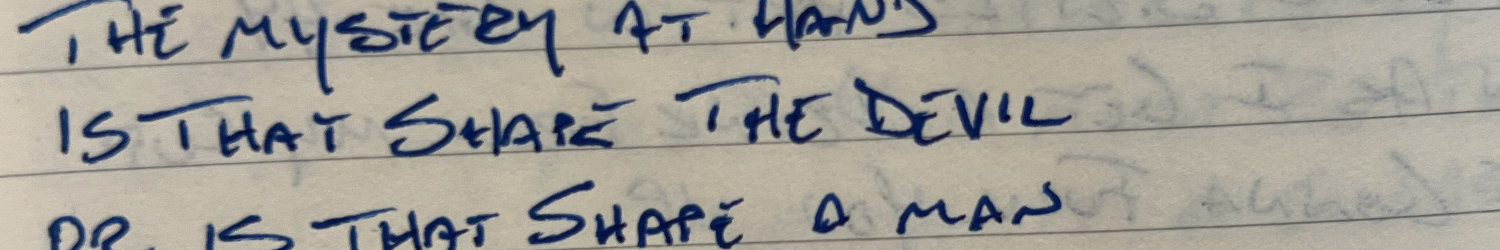 THE MYSTERY AT HAND
IS THAT SHAPE THE DEVIL
OR IS THAT SHAPE A MAN